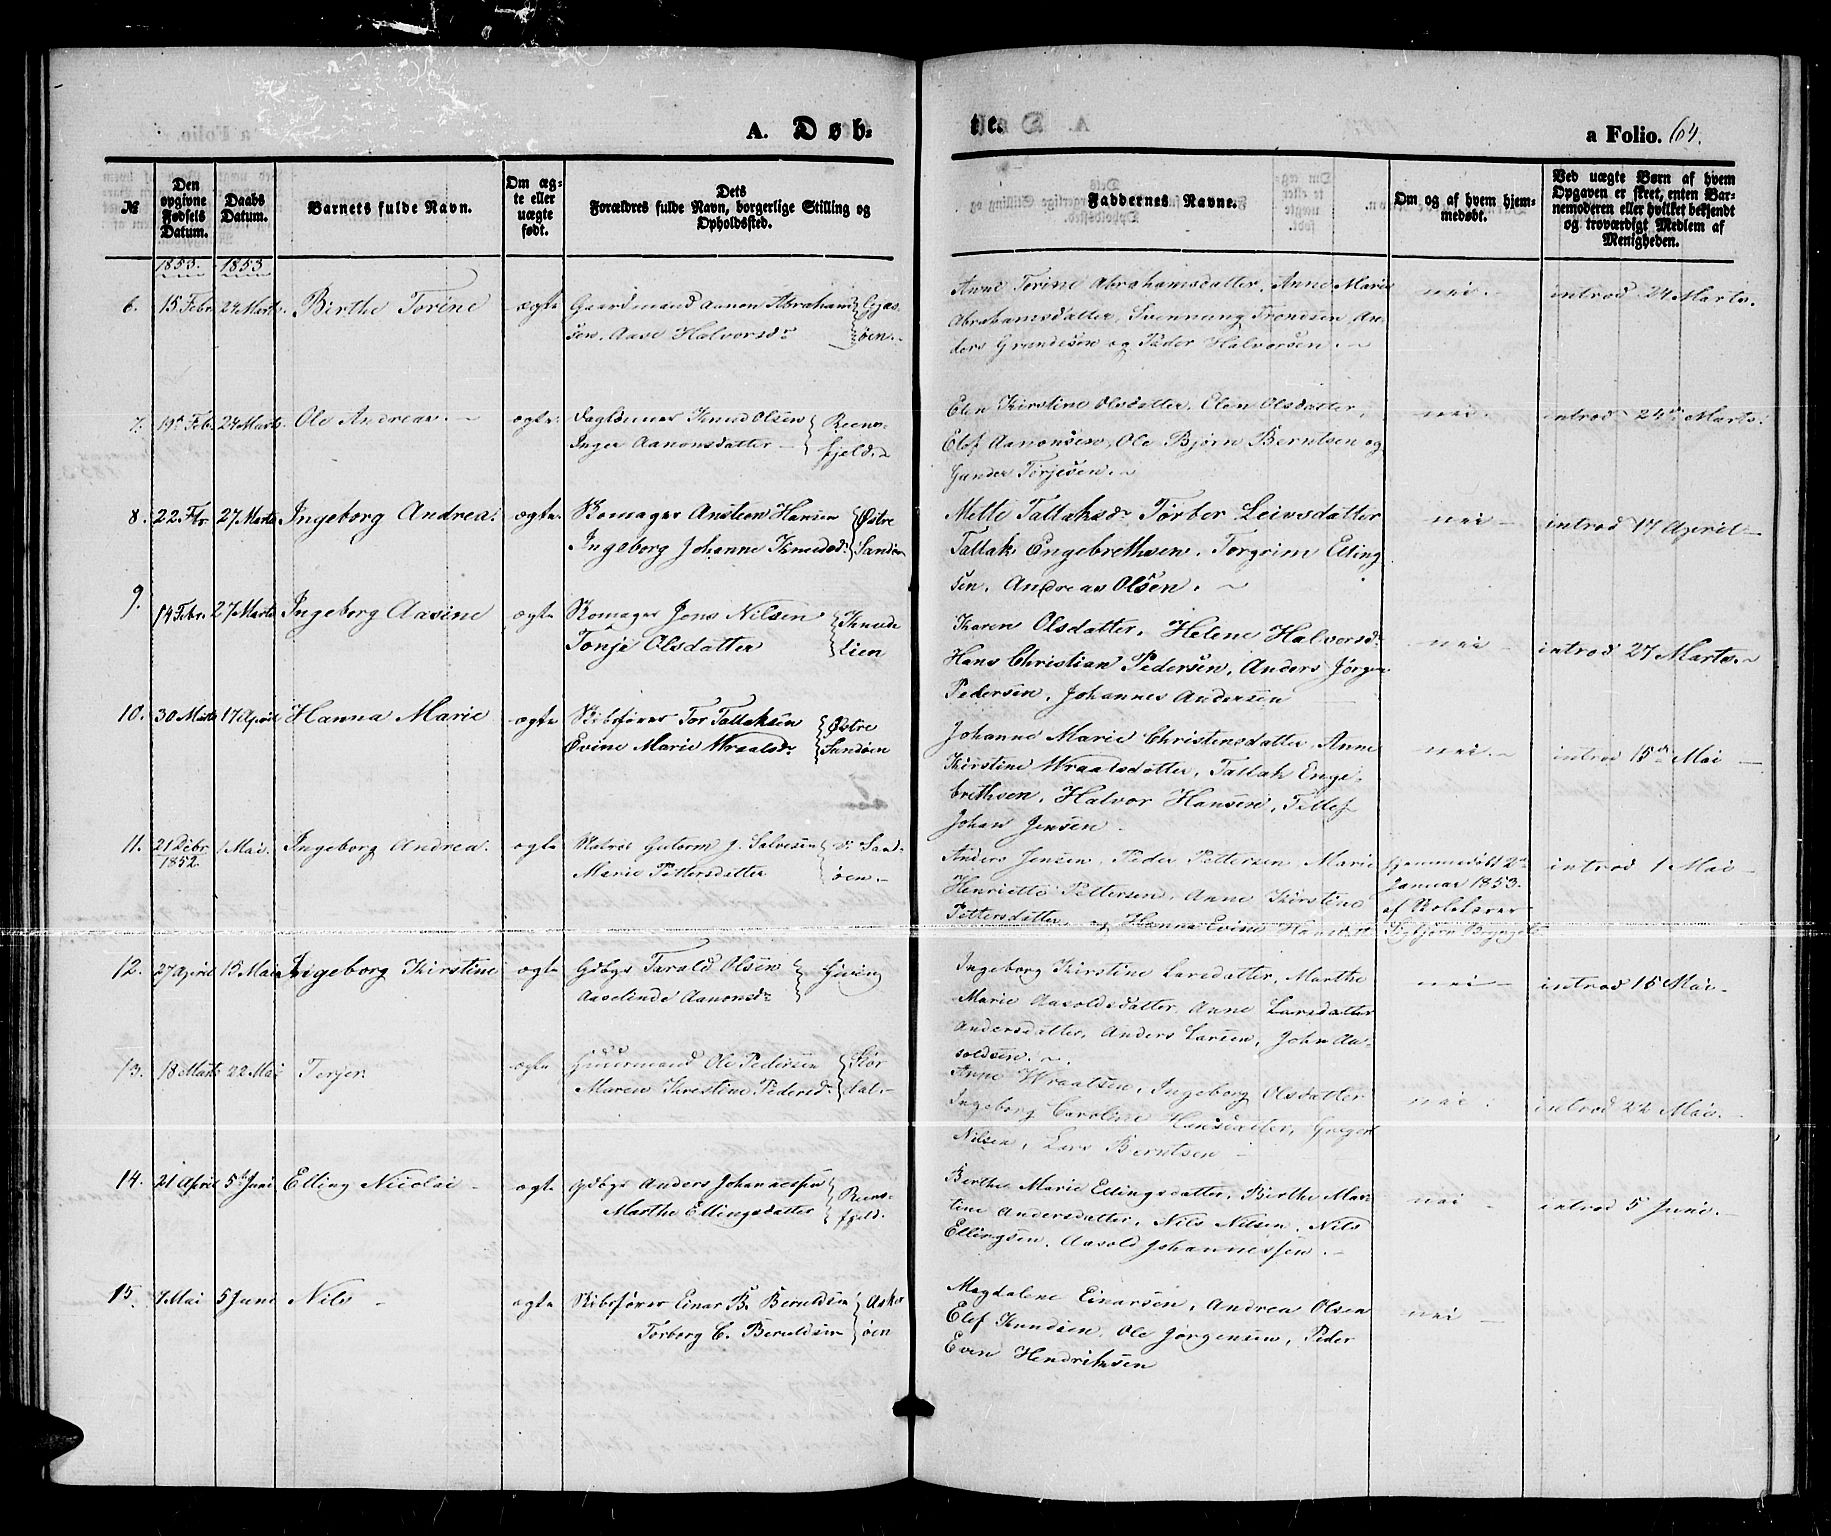 A. Døb-
te.
a Folio. 64.
№
Den opgivne Fødsels Datum.
Daabs Datum.
Barnets fulde Navn.
Om ægte eller uægte født.
Dets Forældres fulde Navn, borgerlige Stilling og Opholdssted.
Faddernes Navne.
Om og af hvem hjemmedøbt.
Ved uægte Børn af hvem Opgaven er skeet, enten Barnemoderen eller hvilket bekjendt og troværdigt Medlem af Menigheden.
1853. 1853
6. 15 Febr 24 Marts. Birthe Torine ægte Gaardmand Aanon Abraham
sen. Aase Halvorsdr
øen.
Anne Torine Abrahamsdatter, Anne Marie
Abrahamsdatter, Svennung Trondsen, An-
ders Grundesen og Peder Halvorsen.
nei. introd 24 Marts.
7. 19de Febr 24 Marts. Ole Andreas ægte Daglønner Knud Olsen
Inger Aanonsdatter
Reens-
fjeld.
Elen Kirstine Olsdatter, Elen Olsdatter,
Elef Aanonsen, Ole Bjørn Berntsen og
Gunder Torjesen.
nei. introd 24de Marts.
8. 22 Fbr. 27 Marts Ingeborg Andrea. ægte Skomager Ansteen Hansen
Ingeborg Johanne Knudsdr
Østre
Sandøen
Mette Tallaksdr Torber Leivsdatter
Tallak Engebrethsen, Torgrim Elling
sen, Andreas Olsen.
nei introd 17 April
9. 14 Febr. 27 Marts Ingeborg Aasine ægte Skomager Jens Nilsen
Tonje Olsdatter
Knude
Lien
Karen Olsdatter, Helene Halvorsdr
Hans Christian Pedersen, Anders Jørgen
Pedersen, Johannes Andersen
nei introd 27 Marts.
10. 30 Marts 17 April Hanna Marie ægte Skibsfører Tor Tallaksen
Evine Marie Wraalsdr
Østre
Sandøen
Johanne Marie Christensdatter, Anne
Kirstine Wraalsdatter, Tallak Enge-
brethsen, Halvor Hansen, Tellef
Johan Jensen.
nei. introd 15de Mai
11. 21 Debr
1852. 1 Mai. Ingeborg Andrea. ægte Matros Gutorm J. Salvesen
Marie Pettersdatter
Sand-
øen.
Anders Jensen, Peder Pettersen Marie
Henriette Pettersen, Anne Kirstine
Pettersdatter, og Hanna Evine Hansdatr
Hjemmedøbt 2de
Januar 1853.
af Skolelærer
introd 1 Mai
12. 27 April 15 Mai Ingeborg Kirstine ægte Gdbgr Tarald Olsen
Aaselinde Aanonsdr
Giving
Ingeborg Kirstine Larsdatter, Marthe
Marie Aasoldsdatter, Anne Larsdatter
Andersdatter, Anders Larsen, John Aa-
soldsen.
nei introd 15 Mai.
13. 18 Marts 22 Mai Terjer ægte Huusmand Ole Pedersen
Maren Kirstine Pedersdr
Stør
dal.
Anne Wraalsen, Ingeborg Olsdatter
Ingeborg Caroline Hansdatter, Gregert
Nilsen, Lars Berntsen
nei introd 22 Mai.
14. 21 April 5te Juni Elling Nicolai ægte Gdbgr Anders Johannessen
Marthe Ellingsdatter
Reens-
fjeld.
Birthe Marie Ellingsdatter, Birthe Mar-
tine Andersdatter, Nils Nilsen, Nils
Ellingsen, Aasold Johannessen.
nei introd 5 Juni.
15. 7 Mai 5 Juni Nils ægte Skibsfører Einar B. Beruldsen
Torborg C. Beruldsen
Asker
øen
Magdalene Einarsen, Andrea Olsen
Elef Knudsen, Ole Jørgensen, Peder
Even Hendriksen
nei